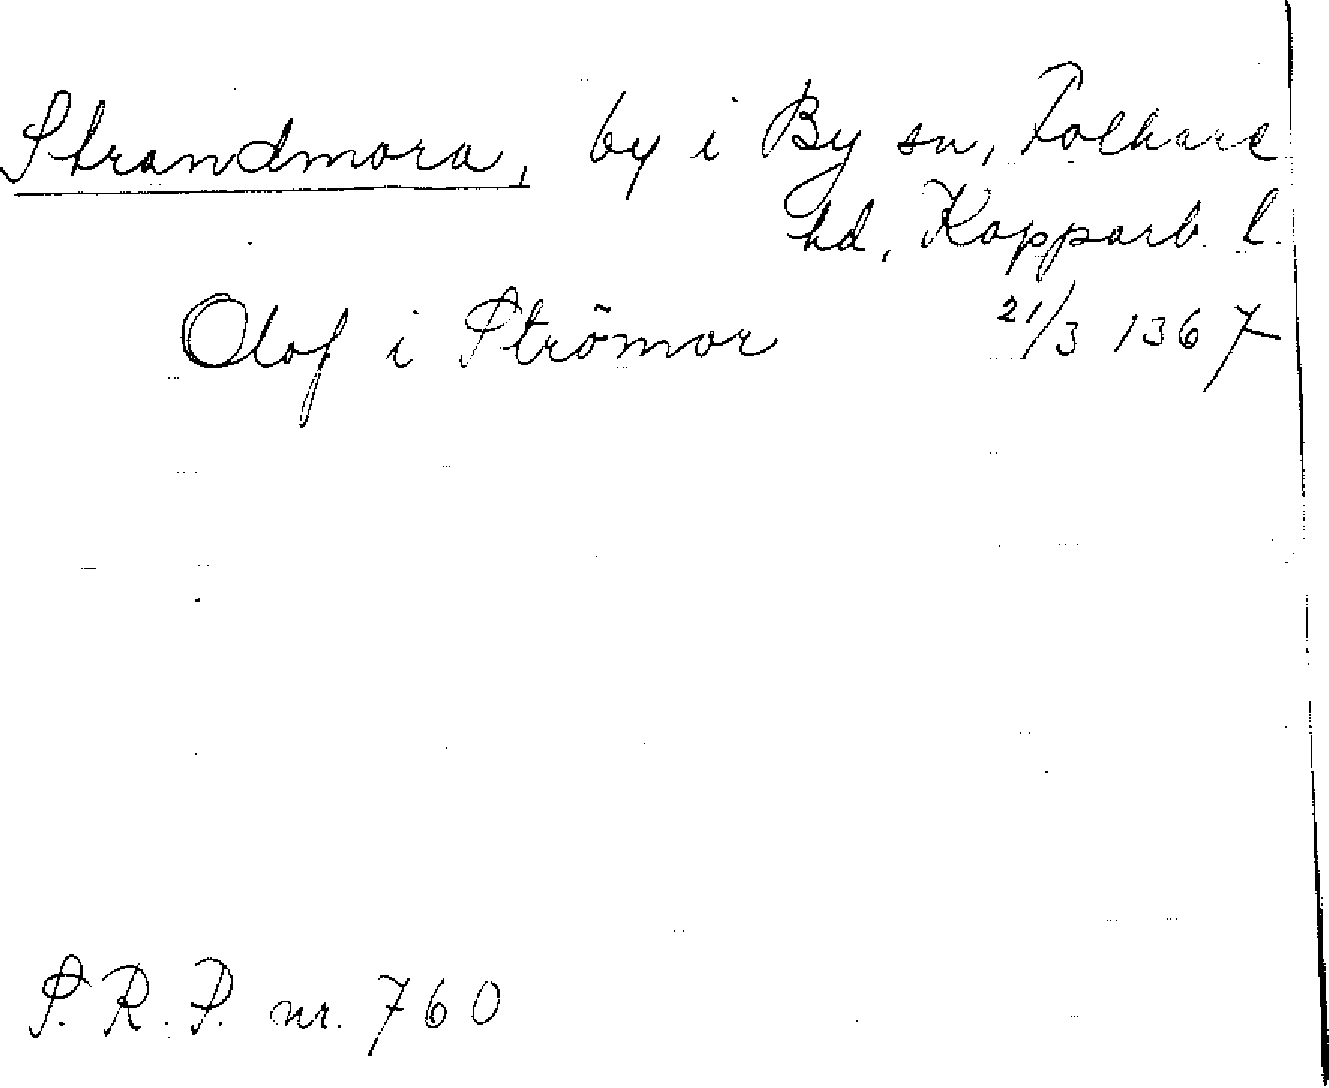 Strandmora, by i By sn, Folkare
hd, Kopparb. l.
Olof i Strömor 21/3 1367
S.R.P. nr. 760